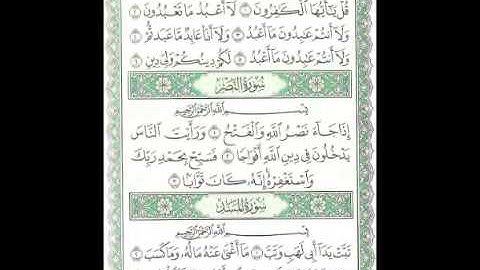 قُلْ يَٰٓأَيُّهَا ٱلْكَٰفِرُونَ ١ لَآ أَعْبُدُ مَا تَعْبُدُونَ ٢
وَلَآ أَنتُمْ عَٰبِدُونَ مَآ أَعْبُدُ ٣ وَلَآ أَنَا۠ عَابِدٌ مَّا عَبَدتُّمْ ٤
وَلَآ أَنتُمْ عَٰبِدُونَ مَآ أَعْبُدُ ٥ لَكُمْ دِينُكُمْ وَلِىَ دِينِ ٦
سُورَةُ النَّصْرِ
بِسْمِ ٱللَّهِ ٱلرَّحْمَٰنِ ٱلرَّحِيمِ
إِذَا جَآءَ نَصْرُ ٱللَّهِ وَٱلْفَتْحُ ١ وَرَأَيْتَ ٱلنَّاسَ
يَدْخُلُونَ فِى دِينِ ٱللَّهِ أَفْوَاجًا ٢ فَسَبِّحْ بِحَمْدِ رَبِّكَ
وَٱسْتَغْفِرْهُ إِنَّهُۥ كَانَ تَوَّابًۢا ٣
سُورَةُ المَسَدِ
بِسْمِ ٱللَّهِ ٱلرَّحْمَٰنِ ٱلرَّحِيمِ
تَبَّتْ يَدَآ أَبِى لَهَبٍ وَتَبَّ ١ مَآ أَغْنَىٰ عَنْهُ مَالُهُۥ وَمَا كَسَبَ ٢